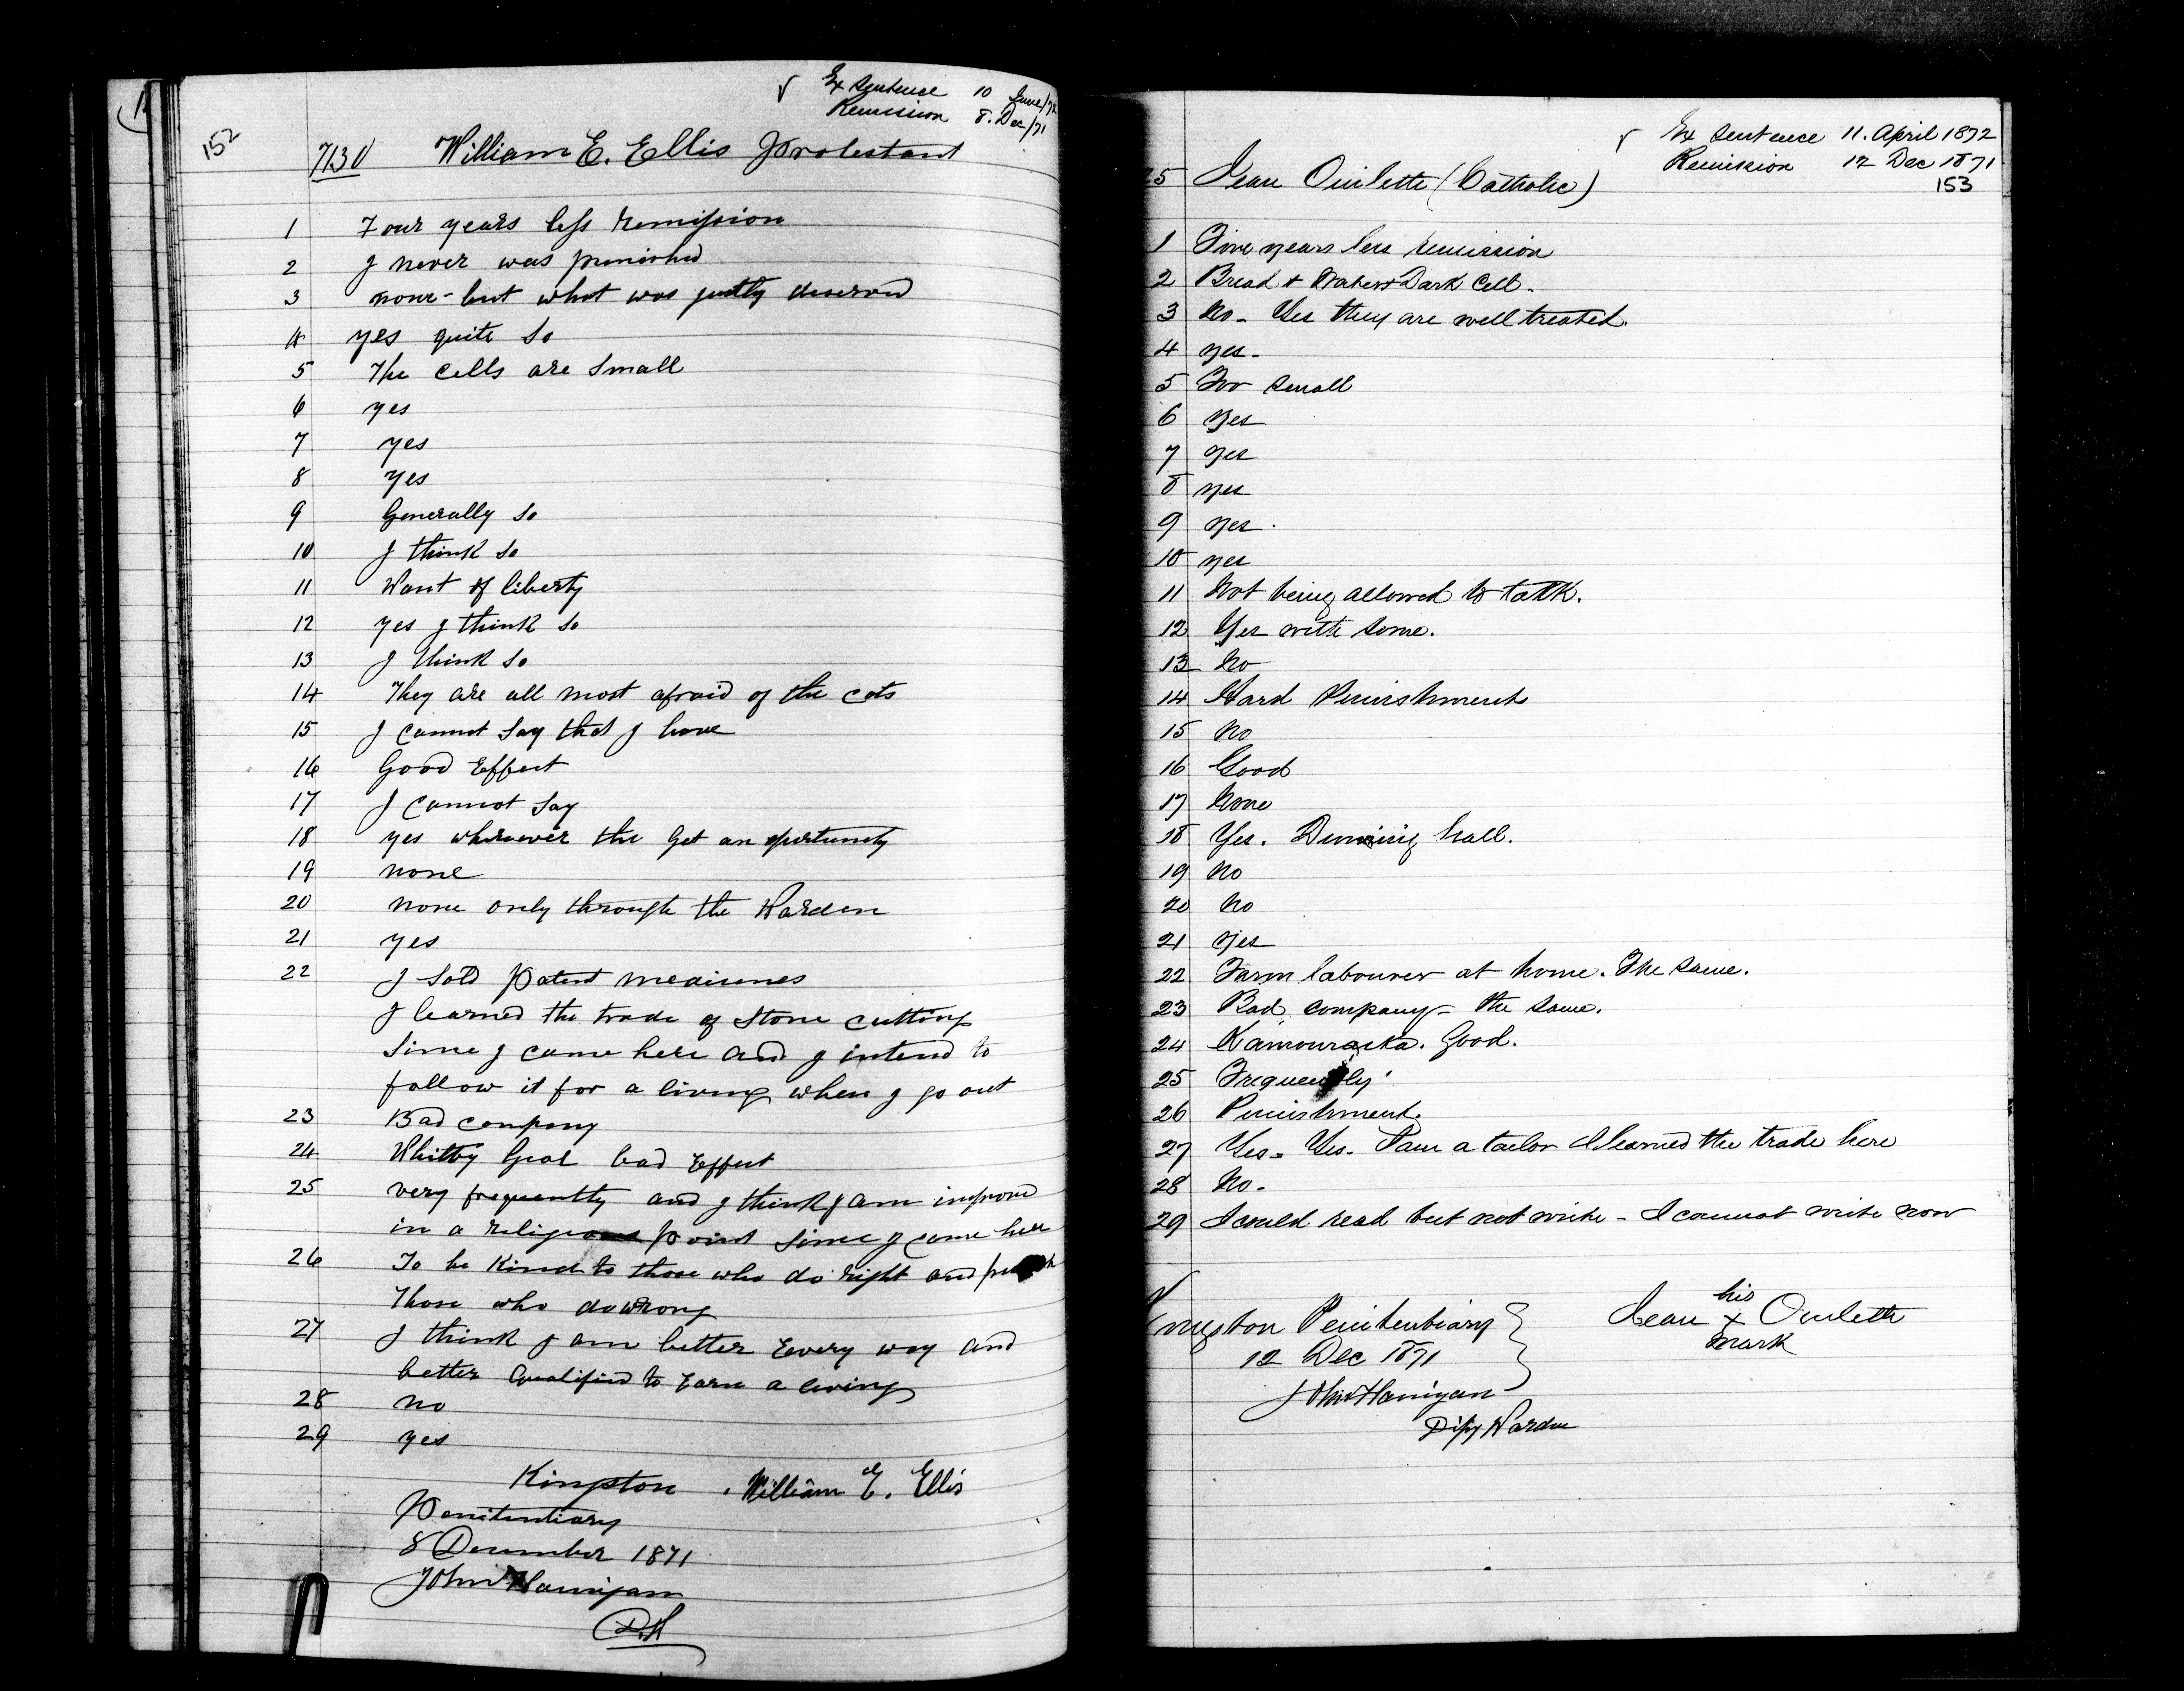 152
√ Ex Sentence 10 June/72
Remission 8. Dec/71
7130 William E. Ellis Protestant
1 Four years less remission
2 I never was punished
3 none - but what was justly deserved
4 yes quite so
5 The cells are small
6 yes
7 yes
8 yes
9 Generally so
10 I think so
11 Want of liberty
12 yes I think so
13 I think so
14 They are all most afraid of the cats
15 I cannot say that I have
16 Good Effect
17 I cannot say
18 yes wherever the get an opertunety
19 none
20 none only through the Warden
21 yes
22 I sold Patent medicines
I learned the trade of Stone cutting
since I came here and I intend to
follow it for a living when I go out
23 Bad company
24 Whitby Goal bad Effect
25 very frequently and I think I am improved
in a religious point since I came here
26 To be Kind to those who do right and
those who do wrong
27 I think I am better Every way and
better qualified to Earn a living
28 no
29 yes
Kingston William E. Ellis
Penitentiary
8 December 1871
John Flanigan
D.W
√ Ex Sentence 11. April 1872
Remission 12 Dec 1871
153
25 Jean Ouilette (Catholic)
1 Five years less remission
2 Bread + Water + Dark Cell.
3 No - Yes they are well treated.
4 yes -
5 Too small
6 Yes
7 yes
8 yes
9 yes.
10 yes
11 Not being allowed to talk.
12 Yes with some.
13 No
14 Hard Punishments
15 No
16 Good
17 None
18 Yes. Dinning hall.
19 No
20 No
21 Yes
22 Farm labourer at home. The same.
23 Bad company - the same.
24 Kamouraska. Good.
25 Frequently.
26 Punishment.
27 Yes - Yes. I am a tailor I learned the trade here
28 No -
29 I could read but not write - I cannot write now
Kingston Penitentiary
12 Dec 1871
his
Jean x Ouilette
mark
John Flanigan
Dipy Warden